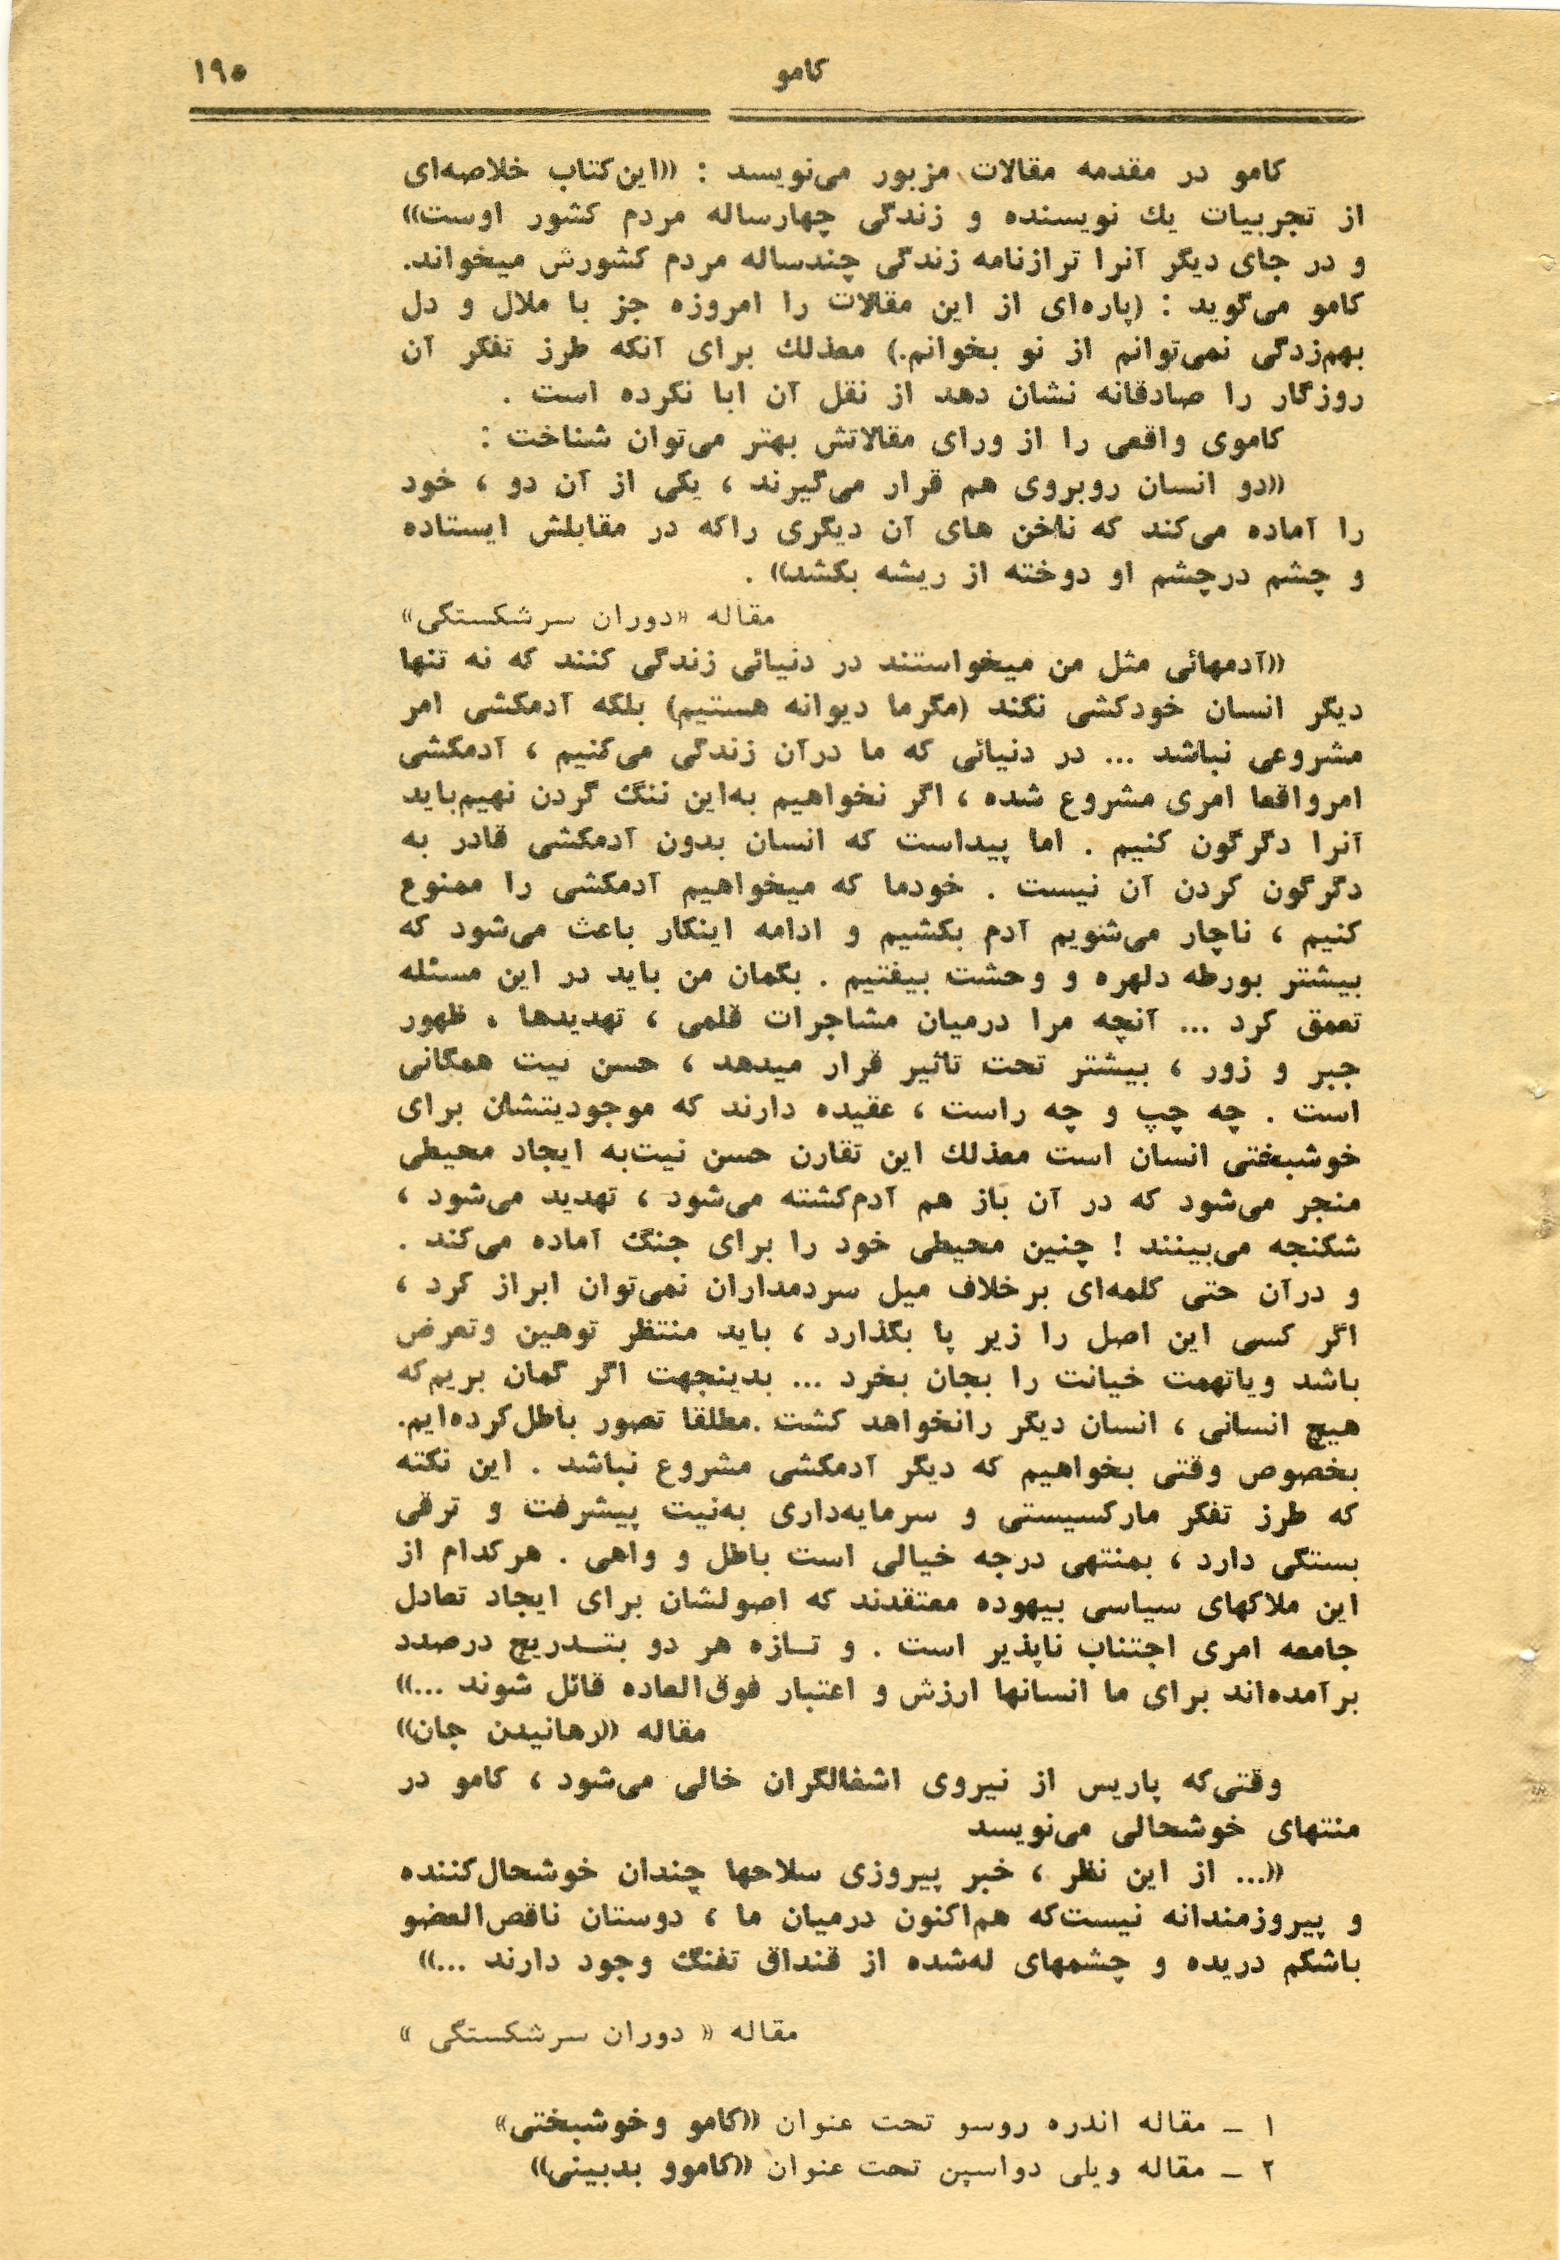 کامو
۱۹۵
کامو در مقدمه مقالات مزبور می‌نویسد : «این‌کتاب خلاصه‌ای
از تجربیات یك نویسنده و زندگی چهارساله مردم کشور اوست»
و در جای دیگر آنرا ترازنامه زندگی چندساله مردم کشورش میخواند.
کامو می‌گوید : (پاره‌ای از این مقالات را امروزه جز با ملال و دل
بهم‌زدگی نمی‌توانم از نو بخوانم.) معذلك برای آنکه طرز تفکر آن
روزگار را صادقانه نشان دهد از نقل آن ابا نکرده است .
کاموی واقعی را از ورای مقالاتش بهتر می‌توان شناخت :
«دو انسان روبروی هم قرار می‌گیرند ، یکی از آن دو ، خود
را آماده می‌کند که ناخن های آن دیگری راکه در مقابلش ایستاده
و چشم درچشم او دوخته از ریشه بکشد» .
مقاله «دوران سرشکستگی»
«آدمهائی مثل من میخواستند در دنیائی زندگی کنند که نه تنها
دیگر انسان خودکشی نکند (مگرما دیوانه هستیم) بلکه آدمکشی امر
مشروعی نباشد ... در دنیائی که ما درآن زندگی می‌کنیم ، آدمکشی
امرواقعا امری مشروع شده ، اگر نخواهیم به‌این ننگ گردن نهیم‌باید
آنرا دگرگون کنیم . اما پیداست که انسان بدون آدمکشی قادر به
دگرگون کردن آن نیست . خودما که میخواهیم آدمکشی را ممنوع
کنیم ، ناچار می‌شویم آدم بکشیم و ادامه اینکار باعث می‌شود که
بیشتر بورطه دلهره و وحشت بیفتیم . بگمان من باید در این مسئله
تعمق کرد ... آنچه مرا درمیان مشاجرات قلمی ، تهدیدها ، ظهور
جبر و زور ، بیشتر تحت تاثیر قرار میدهد ، حسن نیت همگانی
است . چه چپ و چه راست ، عقیده دارند که موجودیتشان برای
خوشبختی انسان است معذلك این تقارن حسن نیت‌به ایجاد محیطی
منجر می‌شود که در آن باز هم آدم‌کشته می‌شود ، تهدید می‌شود ،
شکنجه می‌بینند ! چنین محیطی خود را برای جنگ آماده می‌کند .
و درآن حتی کلمه‌ای برخلاف میل سردمداران نمی‌توان ابراز کرد ،
اگر کسی این اصل را زیر پا بگذارد ، باید منتظر توهین وتعرض
باشد ویاتهمت خیانت را بجان بخرد ... بدینجهت اگر گمان بریم‌که
هیچ انسانی ، انسان دیگر رانخواهد کشت .مطلقا تصور باطل‌کرده‌ایم.
بخصوص وقتی بخواهیم که دیگر آدمکشی مشروع نباشد . این نکته
که طرز تفکر مارکسیستی و سرمایه‌داری به‌نیت پیشرفت و ترقی
بستگی دارد ، بمنتهی درجه خیالی است باطل و واهی . هرکدام از
این ملاکهای سیاسی بیهوده معتقدند که اصولشان برای ایجاد تعادل
جامعه امری اجتناب ناپذیر است . و تـازه هر دو بتـدریج درصدد
برآمده‌اند برای ما انسانها ارزش و اعتبار فوق‌العاده قائل شوند ...»
مقاله «رهانیدن جان»
وقتی‌که پاریس از نیروی اشغالگران خالی می‌شود ، کامو در
منتهای خوشحالی می‌نویسد
«... از این نظر ، خبر پیروزی سلاحها چندان خوشحال‌کننده
و پیروزمندانه نیست‌که هم‌اکنون درمیان ما ، دوستان ناقص‌العضو
باشکم دریده و چشمهای له‌شده از قنداق تفنگ وجود دارند ...»
مقاله « دوران سرشکستگی »
۱ – مقاله اندره روسو تحت عنوان «کامو وخوشبختی»
۲ – مقاله ویلی دواسپن تحت عنوان «کاموو بدبینی»